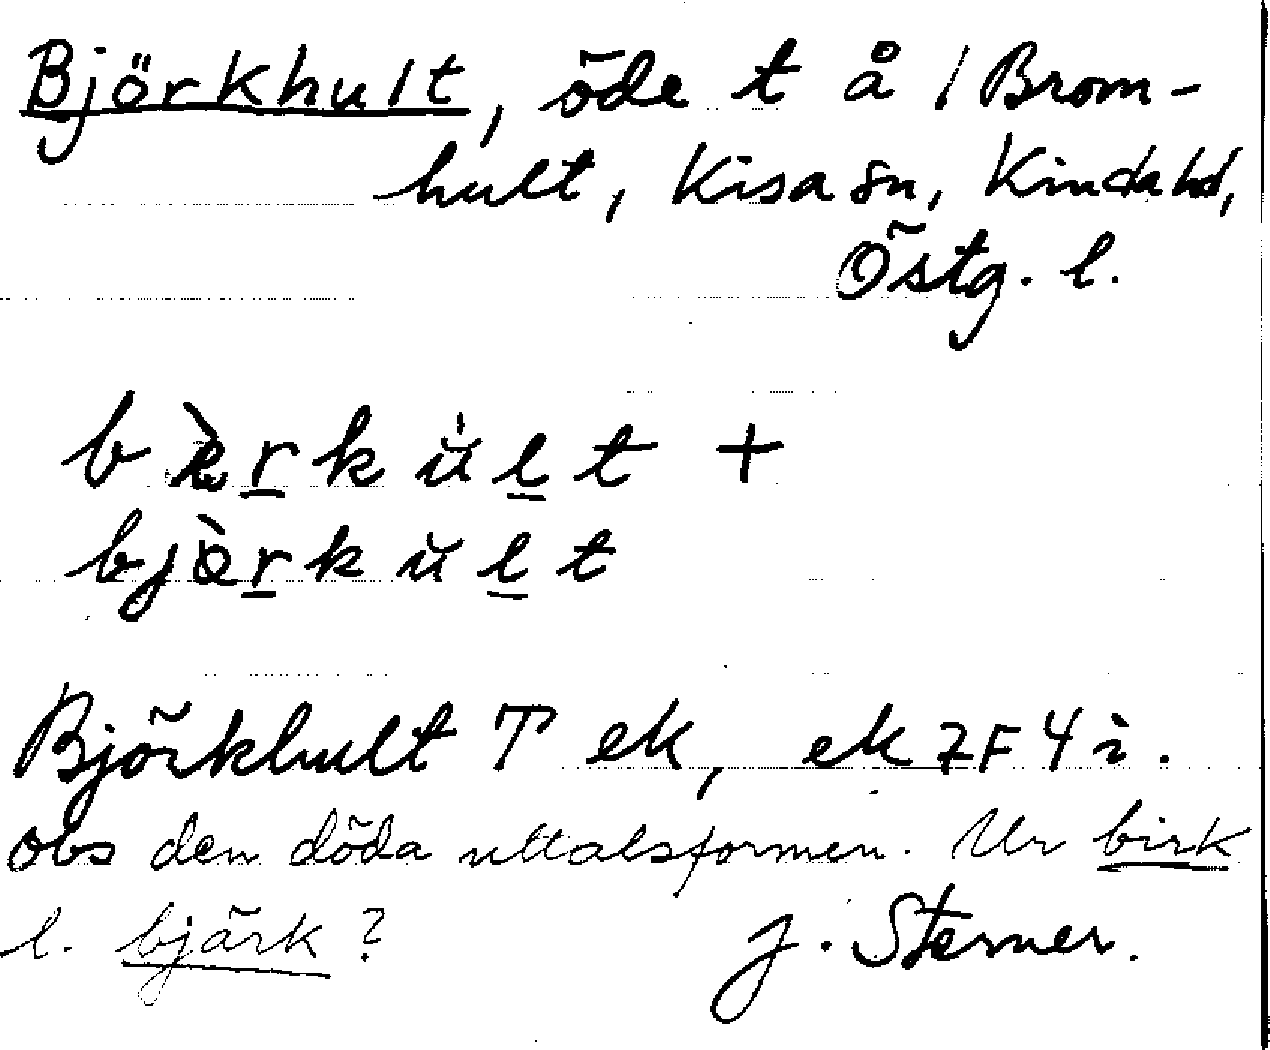 Björkhult, öde t å / Brom-
hult, Kisa sn, Kinda hd,
Östg. l.
b è r k ŭ l t +
bjò r k ŭ l t
Björkhult T ek, ek 7F 4 i.
Obs den döda uttalsformen. Ur birk
l. bjärk?
J. Sterner.